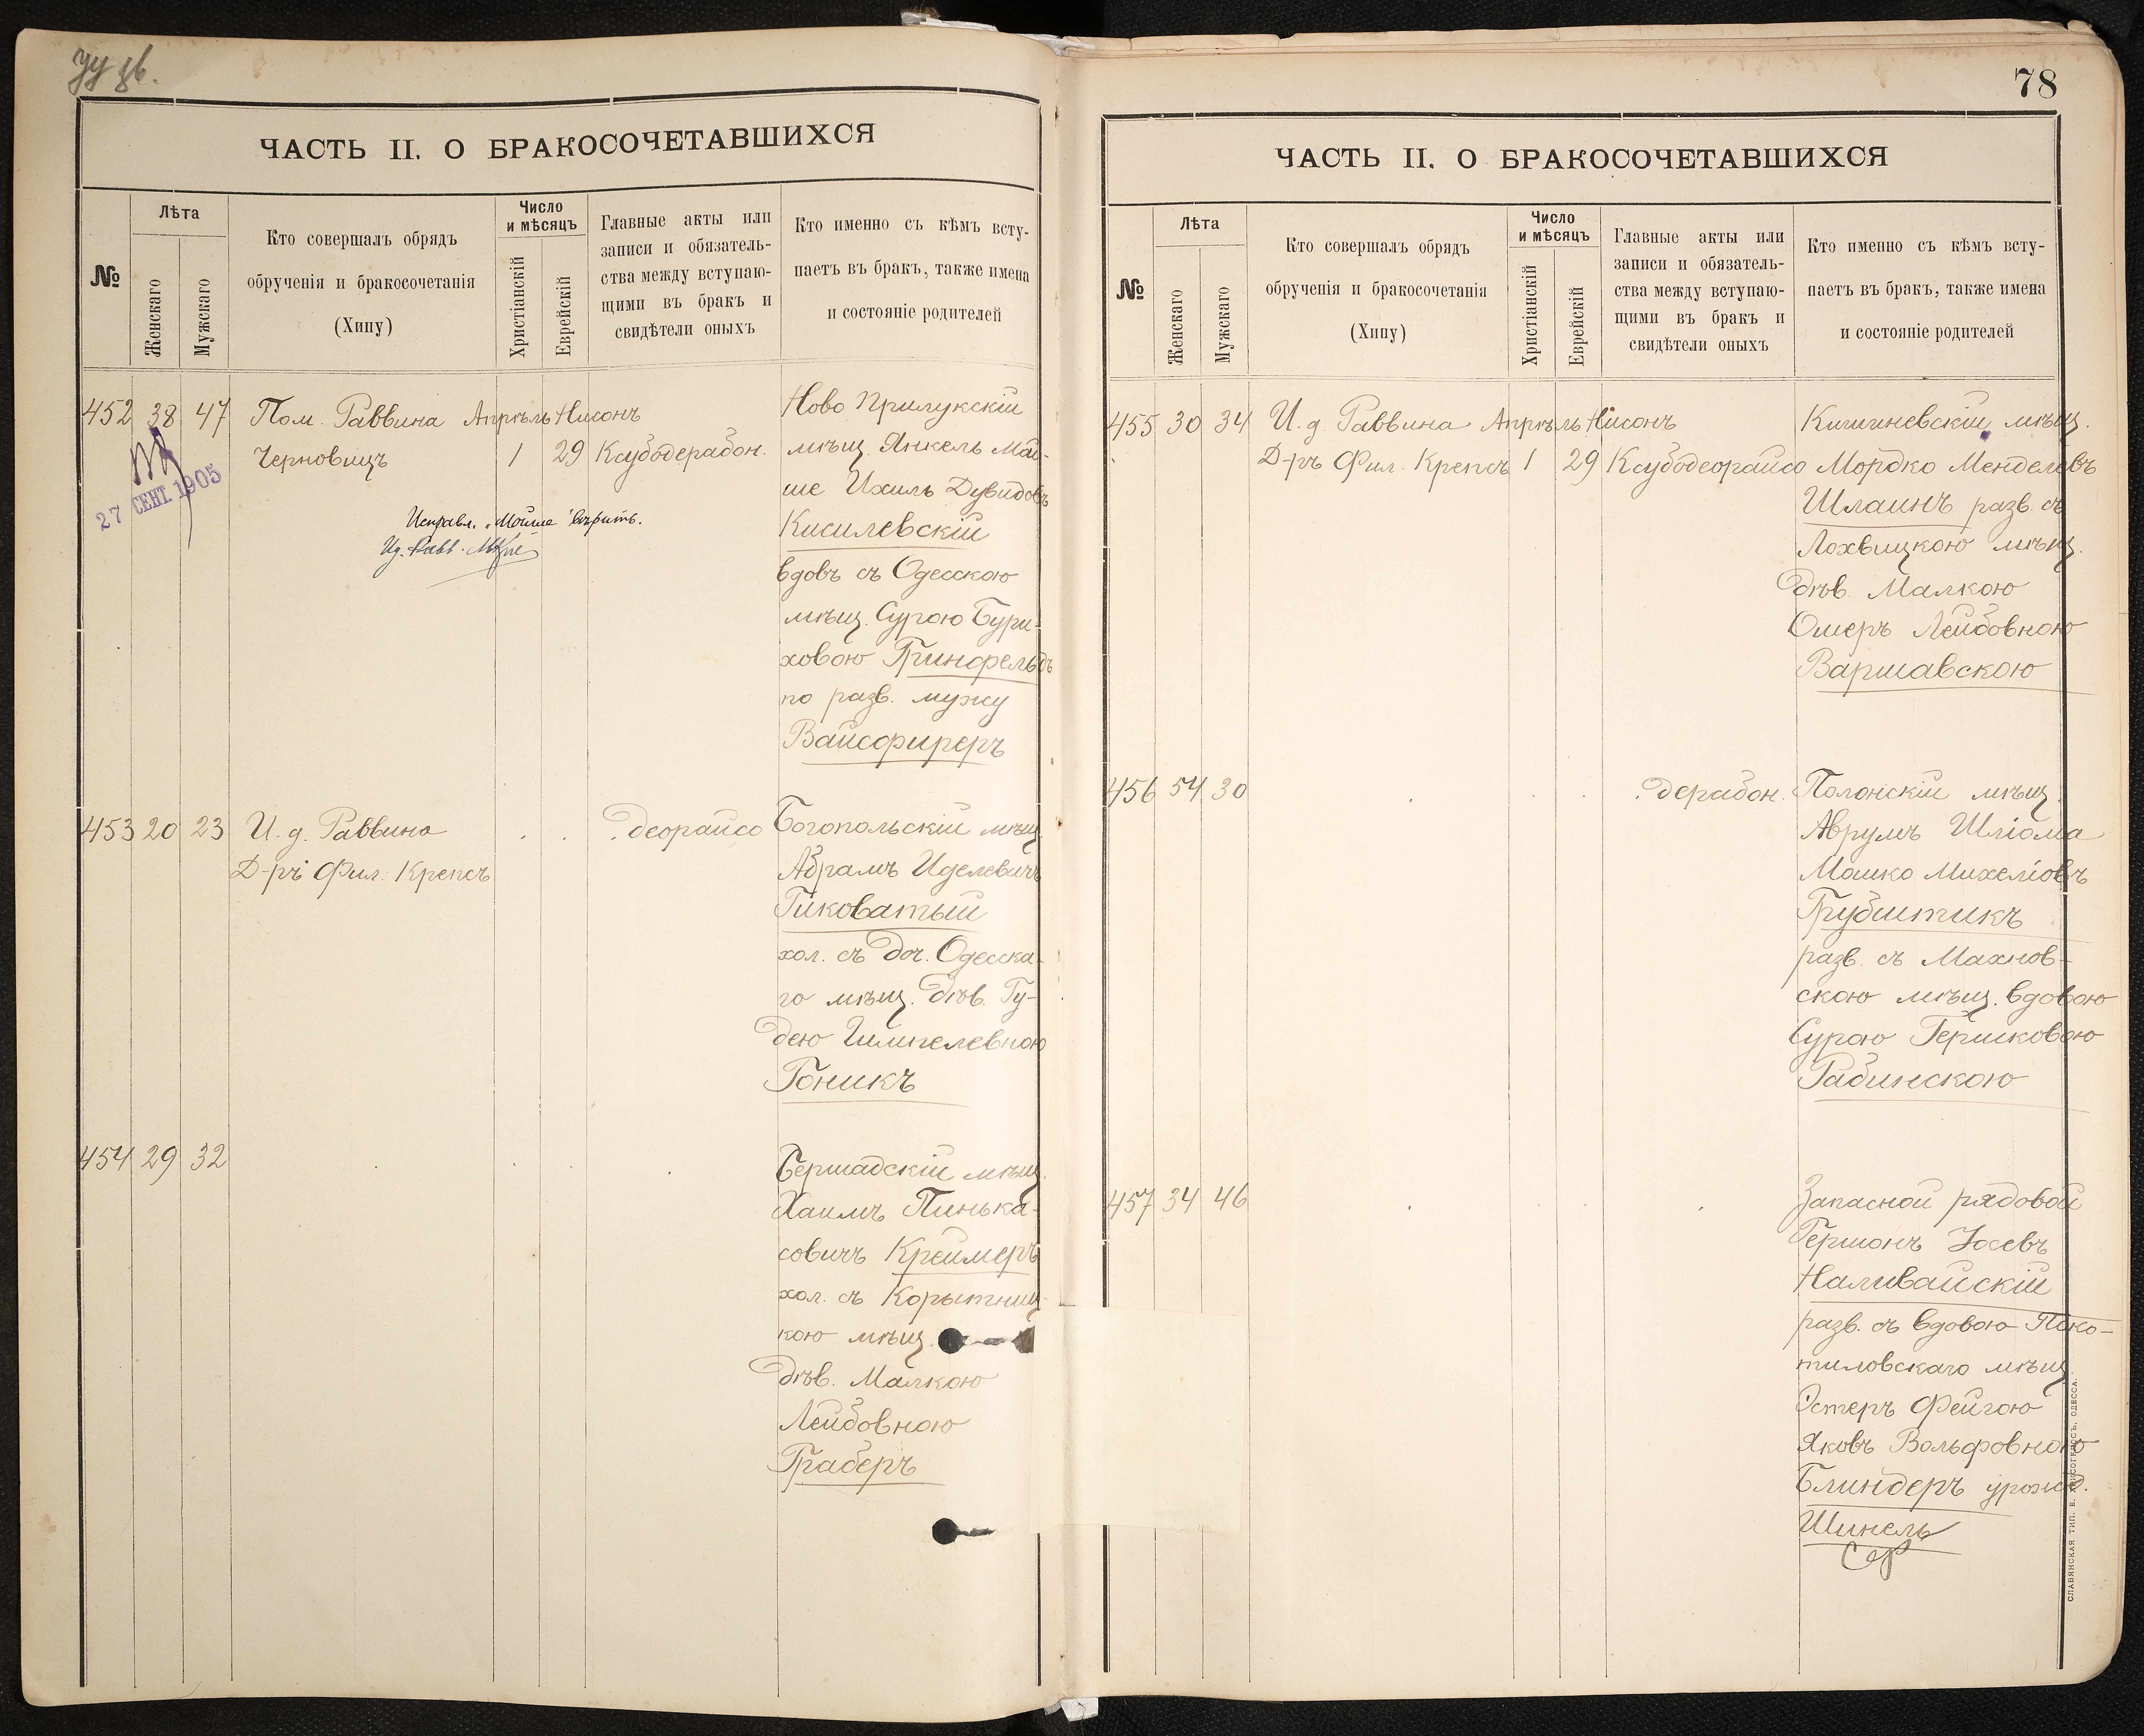 ЧАСТЬ II. О БРАКОСОЧЕТАВШИХСЯ
№
Лѣта
Женскаго
Мужскаго
Кто совершалъ обрядъ
обрученія и бракосочетанія
(Хипу)
Число
и мѣсяцъ
Христіанскій
Еврейскій
Главные акты или
записи и обязатель-
ства между вступаю-
щими въ бракъ и
свидѣтели оныхъ
Кто именно съ кѣмъ всту-
паетъ въ бракъ, также имена
и состояніе родителей
452 38 47 Пом. Раввина Апрѣль Нисонъ
Черновицъ 1 29 Ксубодерабон.
27 СЕНТ. 1905
Исправл. „Мойше" вѣрить.
Ид. Равв.
Ново Прилукскій
мѣщ. Янкель Мой-
ше Ихиль Дувидовъ
Кисилевскій
вдовъ съ Одесскою
мѣщ. Сурою Бури-
ховою Гринфельдъ
по разв. мужу
Вайсфиреръ
453 20 23 И. д. Раввина . . . деорайсо
Д-ръ Фил. Крепсъ
Богопольскій мѣщ.
Абрамъ Иделевичъ
Гиковатый
хол. съ доч. Одесска-
го мѣщ. дѣв. Гу-
дею Гимпелевною
Гоникъ
454 29 32
Бершадскій мѣщ.
Хаимъ Пинька-
совичъ Креймеръ
хол. съ Корытниц-
кою мѣщ.
дѣв. Малкою
Лейбовною
Граберъ
78
ЧАСТЬ II. О БРАКОСОЧЕТАВШИХСЯ
№
Лѣта
Женскаго
Мужскаго
Кто совершалъ обрядъ
обрученія и бракосочетанія
(Хипу)
Число
и мѣсяцъ
Христіанскій
Еврейскій
Главные акты или
записи и обязатель-
ства между вступаю-
щими въ бракъ и
свидѣтели оныхъ
Кто именно съ кѣмъ всту-
паетъ въ бракъ, также имена
и состояніе родителей
455 30 34 И. д. Раввина Апрѣль Нисонъ
Д-ръ Фил. Крепсъ 1 29 Ксубодеорайсо
Кишиневскій мѣщ.
Мордко Менделевъ
Шлаинъ разв. съ
Лохвицкою мѣщ.
дѣв. Малкою
Омеръ Лейбовною
Варшавскою
456 54 30 . . . . дерабон.
Полонскій мѣщ.
Аврумъ Шліома
Мошко Михеліовъ
Грубштикъ
разв. съ Махнов-
скою мѣщ. вдовою
Сурою Гершковою
Рабинскою
457 34 46
Запасной рядовой
Гершонъ Хаевъ
Наливайскій
разв. съ вдовою Пско-
тиловскаго мѣщ.
Эстеръ Фейгою
Яковъ Вольфовною
Блиндеръ урожд.
Шинель
СЛАВЯНСКАЯ ТИП. Е. ХРИСОГЕЛОСЪ, ОДЕССА.